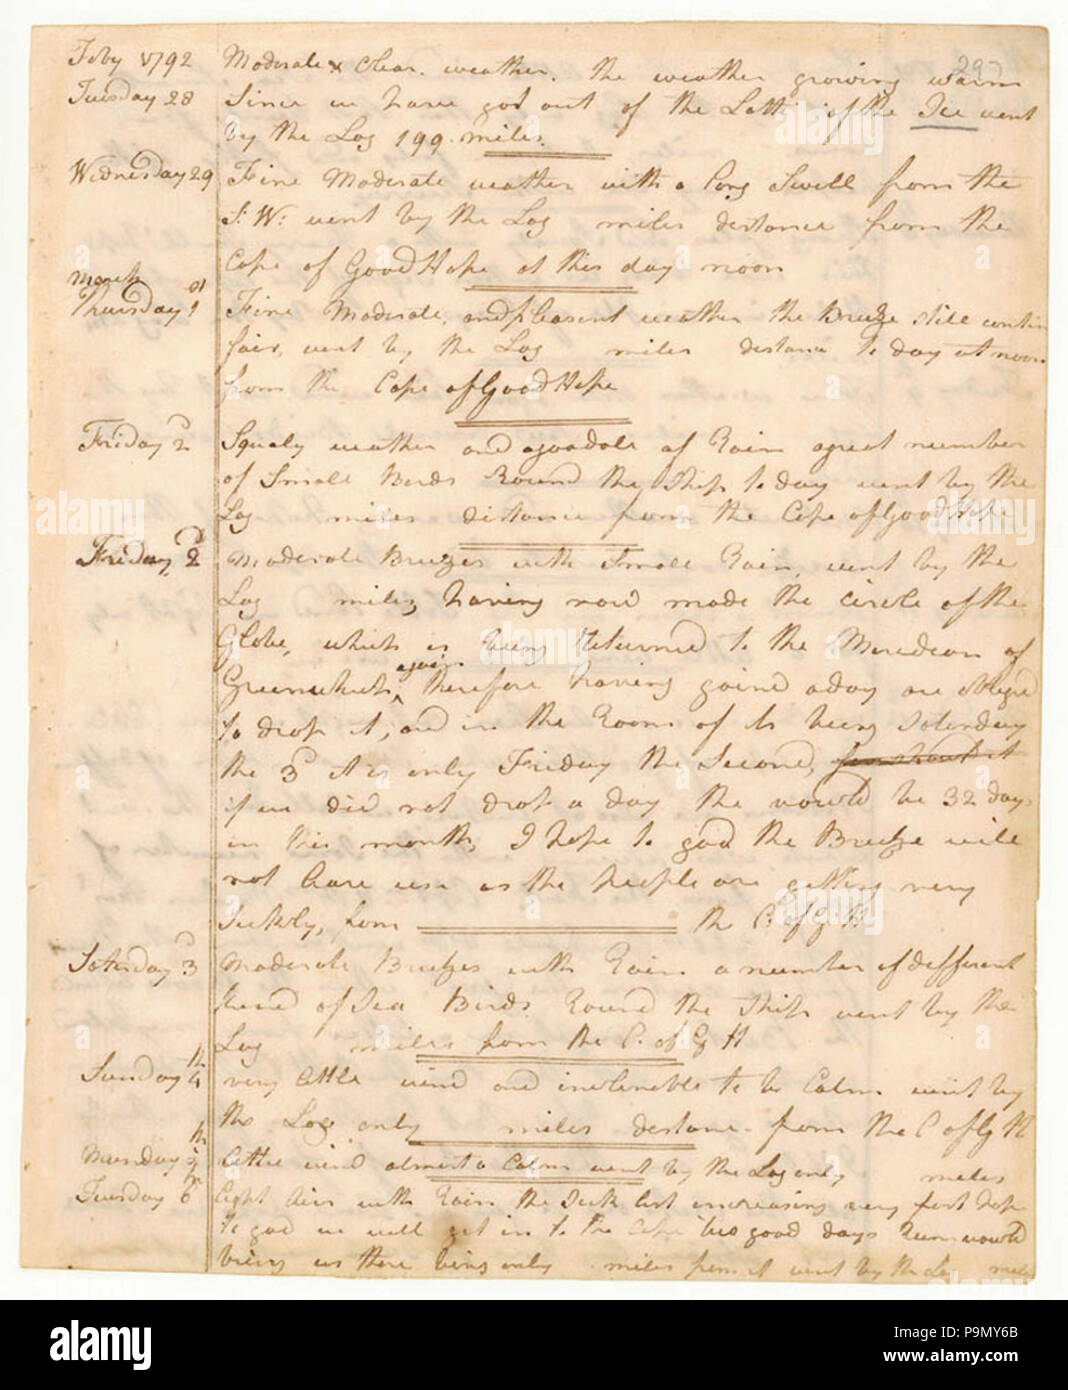 297
Feby 1792 Moderate & Clear. weather. the weather growing warm
Tuesday 28 Since we have got out of the Latti: of the Ice went
by the Log 199. miles.
Wednesday 29 Fine Moderate weather with a Long Swell from the
S: W: went by the Log miles distance from the
Cape of Good Hope at this day noon
March
Thursday 01 Fine Moderate, and pleasent weather the Breeze still contin
fair, went by the Log miles distance to day at noon
from the Cape of Good Hope
Friday 2d Squaly weather and a goodole of Rain a great number
of Small Birds Round the Ship to day went by the
Log miles distance from the Cape of Good Hope
Friday, 2d Moderate Breezes with Small Rain, went by the
Log miles, having now made the Circle of the
Globe, which is being Returned to the Meredean of
Greenwhich again therefore having gained a day are obliged
to drop it, and in the Room of its being Saterday
the 3d it is only Friday the Second, it
if we did not drop a day the would be 32 days
in this month, I hope to god the Breeze will
not leave us as the people are getting very
Sickly, from the C of G H
Saterday 3d Moderate Breezes with Rain. a number of different
kind of Sea Birds Round the Ship went by the
Log miles from the C. of G H
Sunday 4th very little wind and inclenable to be Calm went by
the Log only miles distance from the C of G H
Munday 5th little wind almost a Calm went by the Log only miles
Tuesday 6th light Airs with Rain the Sick list increasing very fast hope
to god we will get in to the Cape two good days Run would
bring us there being only miles from it went by the Log miles
alamy
alamy
alamy
alamy
alamy
alamy
alamy
alamy
alamy
Image ID: P9MY6B
www.alamy.com